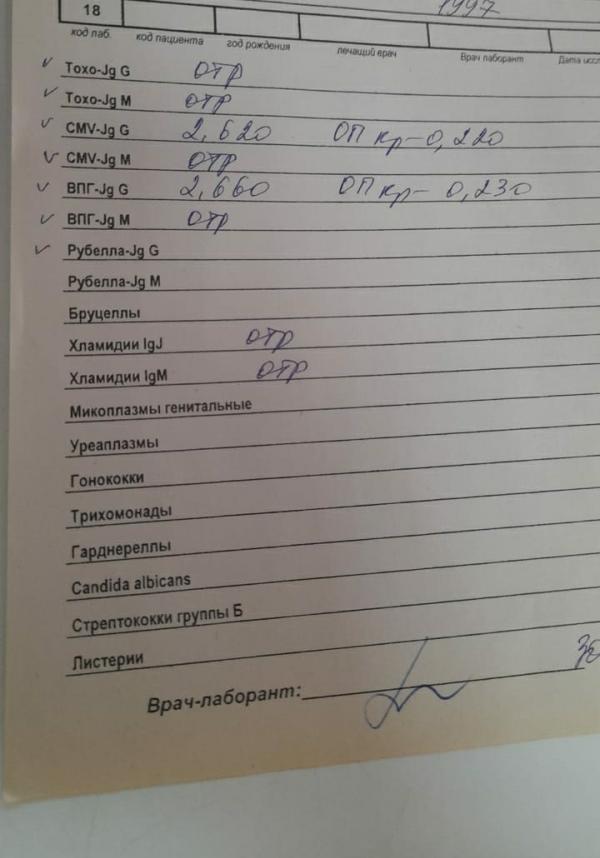 1997
18
код лаб. код пациента год рождения лечащий врач Врач лаборант Дата иссл
Тохо-Jg G отр
Тохо-Jg M отр
CMV-Jg G 2,620 ОП кр-0,220
CMV-Jg M отр
ВПГ-Jg G 2,660 ОП кр- 0,230
ВПГ-Jg M отр
Рубелла-Jg G
Рубелла-Jg M
Бруцеллы
Хламидии IgJ отр
Хламидии IgM отр
Микоплазмы генитальные
Уреаплазмы
Гонококки
Трихомонады
Гарднереллы
Candida albicans
Стрептококки группы Б
Листерии
Врач-лаборант: